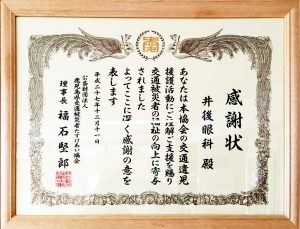 感謝状
井後眼科 殿
あなたは本協会の交通遺児
援護活動にご理解ご支援を賜り
交通被災者の福祉の向上に寄与
されました
よってここに深く感謝の意を
表します
平成二十七年十二月十一日
公益財団法人
鹿児島県交通被災者たすけあい協会
理事長 福石堅郎